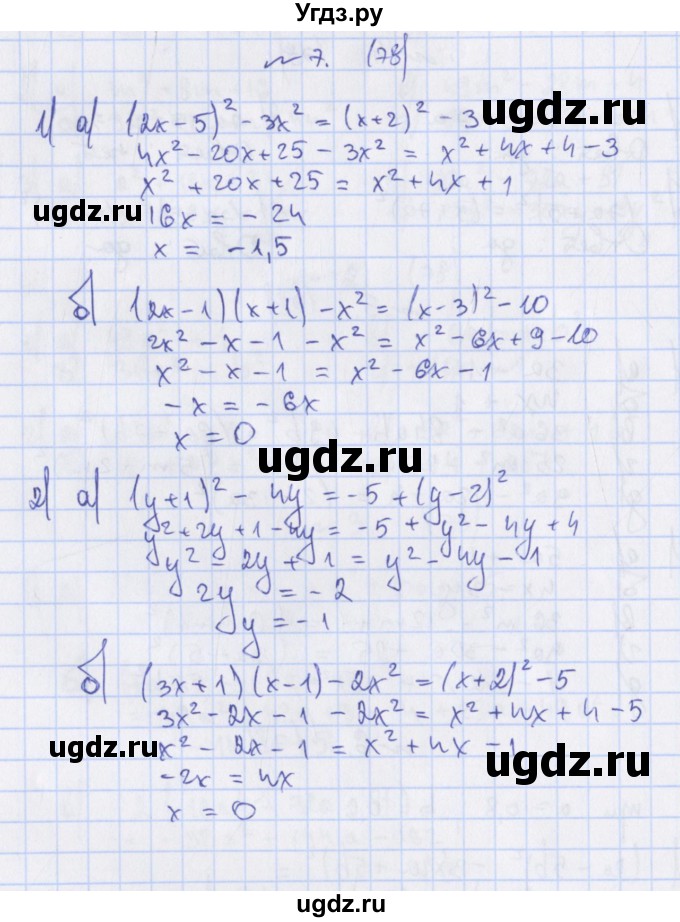 Угдз.ру
№ 7. (78)
1) а) (2x – 5)² – 3x² = (x+2)² – 3
ugdz.ru
4x² – 20x + 25 – 3x² = x² + 4x + 4 – 3
x² + 20x + 25 = x² + 4x + 1
ugdz.ru
16x = – 24
x = – 1,5
б) (2x – 1)(x+1) – x² = (x – 3)² – 10
2x² – x – 1 – x² = x² – 6x + 9 – 10
x² – x – 1 = x² – 6x – 1
– x = – 6x
x = 0
ugdz.ru
2) а) (y+1)² – 4y = – 5 + (y – 2)²
y² + 2y + 1 – 4y = – 5 + y² – 4y + 4
y² – 2y + 1 = y² – 4y – 1
2y = – 2
y = – 1
б) (3x + 1)(x – 1) – 2x² = (x + 2)² – 5
3x² – 2x – 1 – 2x² = x² + 4x + 4 – 5
ugdz.ru
x² – 2x – 1 = x² + 4x – 1
ugdz.ru
– 2x = 4x
x = 0
ugdz.ru